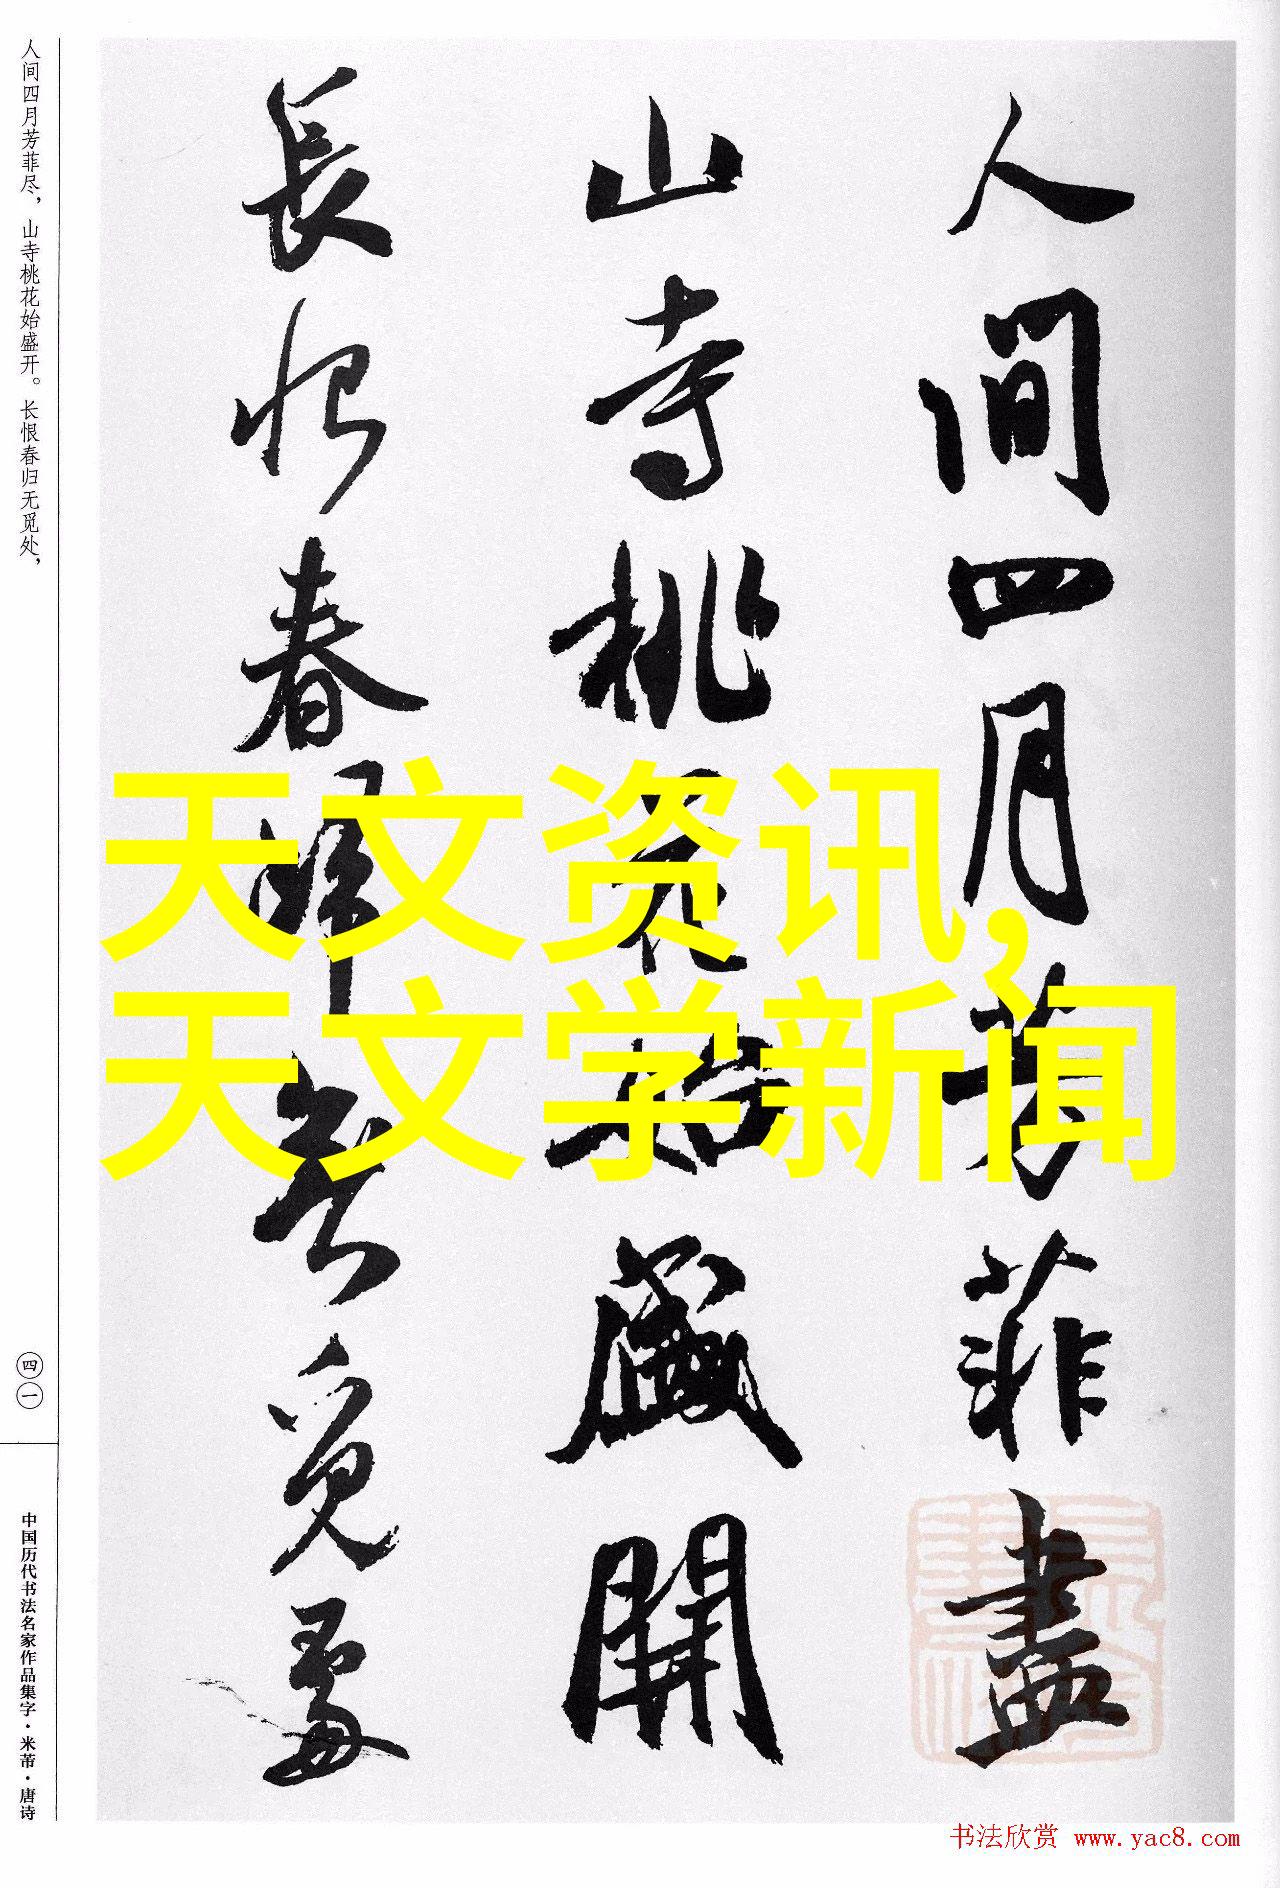 人間四月芳菲盡
山寺桃花始盛開
長恨春歸無覓處
天文资讯,
天文学新闻
人间四月芳菲尽，山寺桃花始盛开。长恨春归无觅处，
四一
中国历代书法名家作品集字·米芾·唐诗
书法欣赏 www.yac8.com